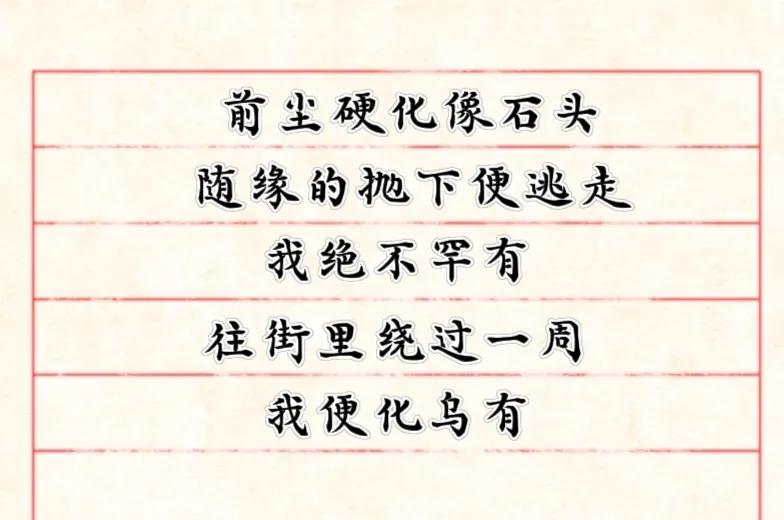 前尘硬化像石头
随缘的抛下便逃走
我绝不罕有
往街里绕过一周
我便化乌有